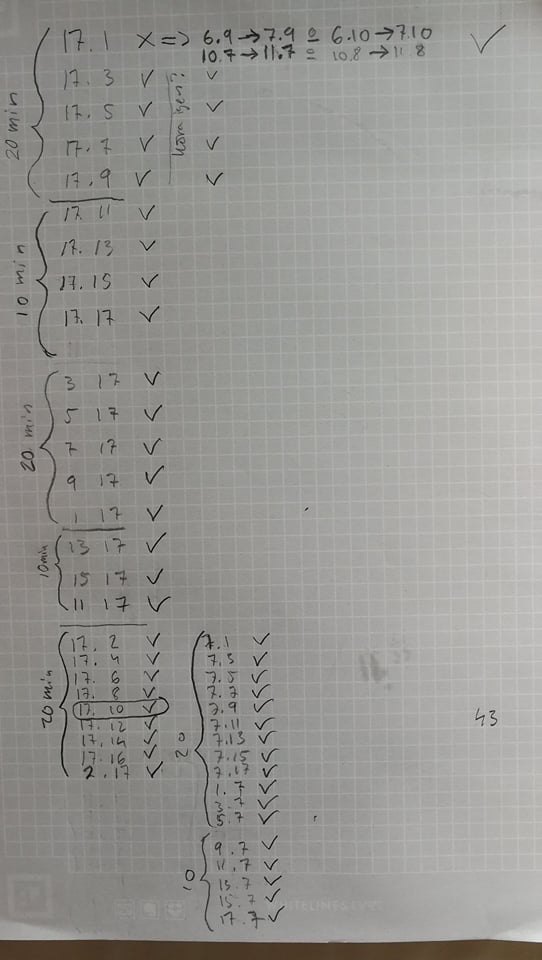 17.1 x => 6.9 → 7.9 º 6.10 → 7.10 ✓
10.7 → 11.7 º 10.8 → 11.8
20 min
17.3 ✓ ✓
17.5 ✓ ✓
17.7 ✓ ✓
17.9 ✓ ✓
10 min
17.11 ✓
17.13 ✓
17.15 ✓
17.17 ✓
20 min
3 17 ✓
5 17 ✓
7 17 ✓
9 17 ✓
1 17 ✓
10 min
13 17 ✓
15 17 ✓
11 17 ✓
20 min
17.2 ✓
17.4 ✓
17.6 ✓
17.8 ✓
17.10 ✓
17.12 ✓
17.14 ✓
17.16 ✓
2.17 ✓
20
7.1 ✓
7.3 ✓
7.5 ✓
7.7 ✓
7.9 ✓
7.11 ✓
7.13 ✓
7.15 ✓
7.17 ✓
1.7 ✓
3.7 ✓
5.7 ✓
10
9.7 ✓
11.7 ✓
13.7 ✓
15.7 ✓
17.7 ✓
43